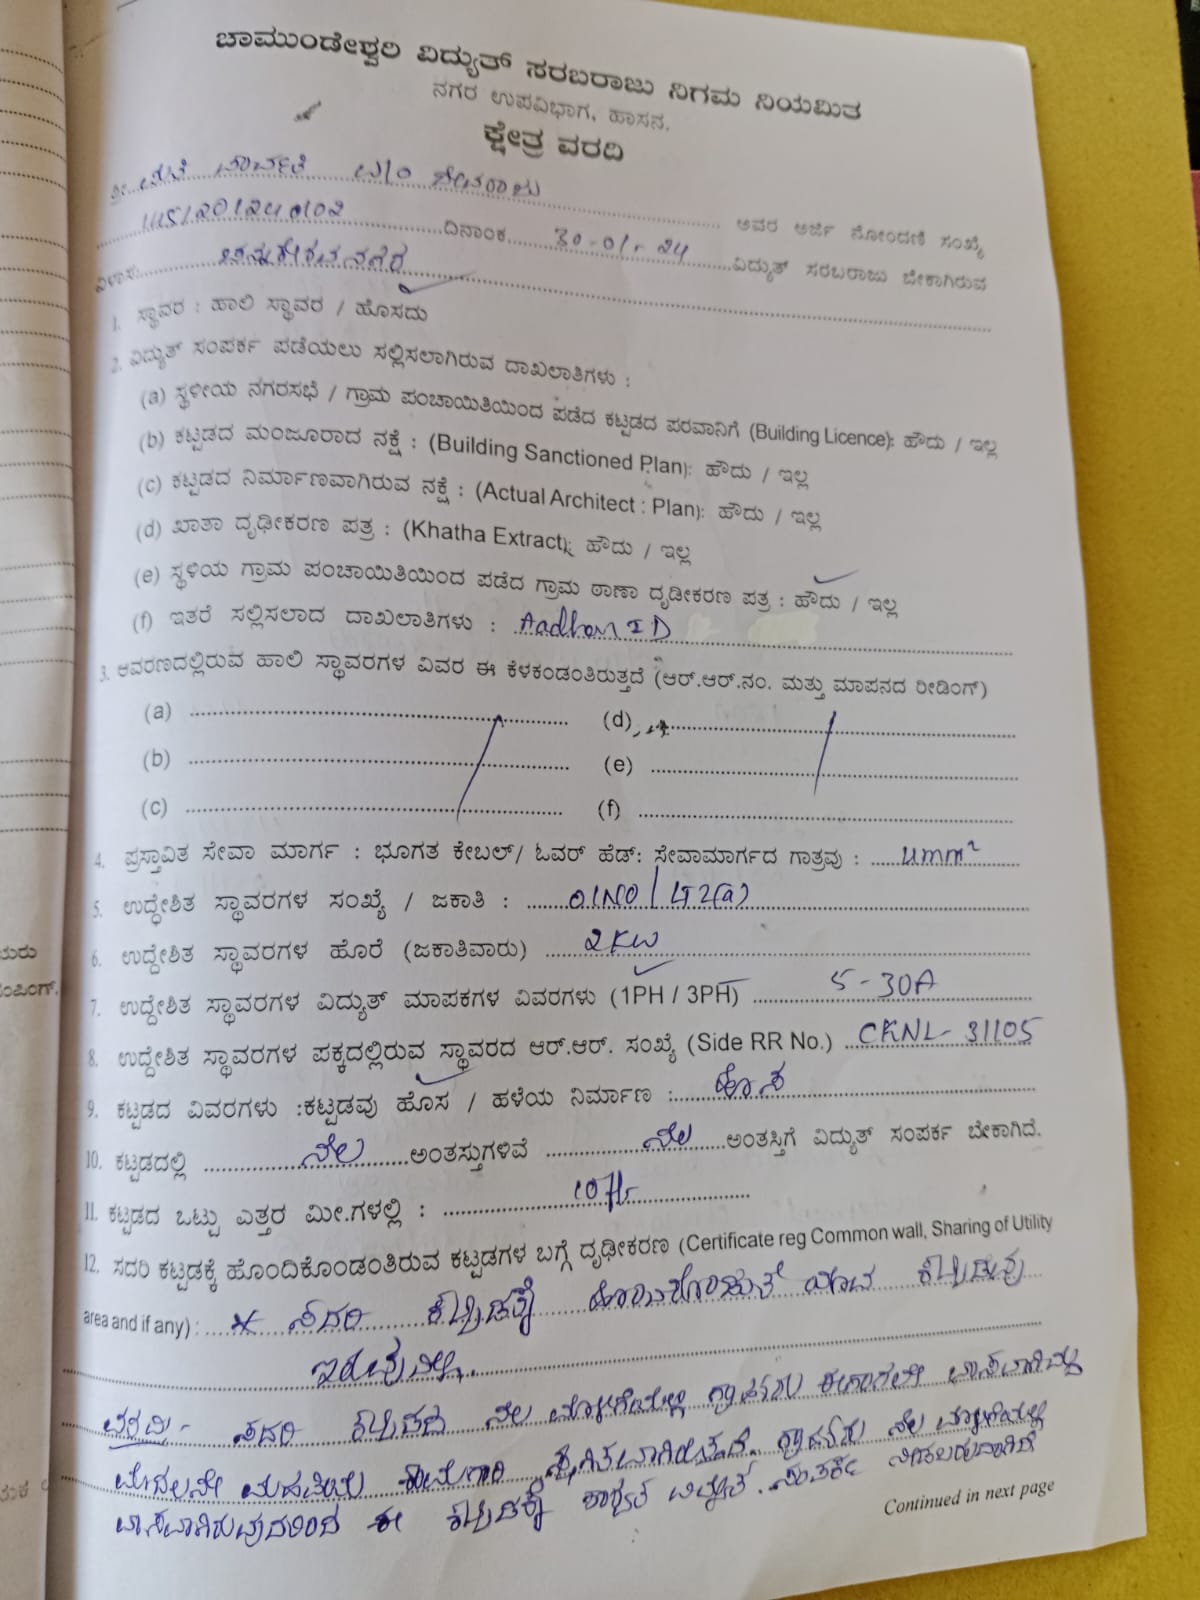 ಚಾಮುಂಡೇಶ್ವರಿ ವಿದ್ಯುತ್ ಸರಬರಾಜು ನಿಗಮ ನಿಯಮಿತ
ನಗರ ಉಪವಿಭಾಗ, ಹಾಸನ.
ಕ್ಷೇತ್ರ ವರದಿ
ಶ್ರೀ.. ಮತಿ ಪಾರ್ವತಿ W/O
ಅವರ ಅರ್ಜಿ ನೋಂದಣಿ ಸಂಖ್ಯೆ
ದಿನಾಂಕ 30-01-24 ವಿದ್ಯುತ್ ಸರಬರಾಜು ಬೇಕಾಗಿರುವ
ವಿಳಾಸ: ಚನ್ನಕೇಶವನಗರ
1. ಸ್ಥಾವರ : ಹಾಲಿ ಸ್ಥಾವರ / ಹೊಸದು
2. ವಿದ್ಯುತ್ ಸಂಪರ್ಕ ಪಡೆಯಲು ಸಲ್ಲಿಸಲಾಗಿರುವ ದಾಖಲಾತಿಗಳು :
(a) ಸ್ಥಳೀಯ ನಗರಸಭೆ / ಗ್ರಾಮ ಪಂಚಾಯಿತಿಯಿಂದ ಪಡೆದ ಕಟ್ಟಡದ ಪರವಾನಿಗೆ (Building Licence): ಹೌದು / ಇಲ್ಲ
(b) ಕಟ್ಟಡದ ಮಂಜೂರಾದ ನಕ್ಷೆ : (Building Sanctioned Plan): ಹೌದು / ಇಲ್ಲ
(c) ಕಟ್ಟಡದ ನಿರ್ಮಾಣವಾಗಿರುವ ನಕ್ಷೆ : (Actual Architect : Plan): ಹೌದು / ಇಲ್ಲ
(d) ಖಾತಾ ದೃಢೀಕರಣ ಪತ್ರ : (Khatha Extract): ಹೌದು / ಇಲ್ಲ
(e) ಸ್ಥಳಿಯ ಗ್ರಾಮ ಪಂಚಾಯಿತಿಯಿಂದ ಪಡೆದ ಗ್ರಾಮ ಠಾಣಾ ದೃಡೀಕರಣ ಪತ್ರ : ಹೌದು / ಇಲ್ಲ
(f) ಇತರೆ ಸಲ್ಲಿಸಲಾದ ದಾಖಲಾತಿಗಳು : Aadhar ID
3. ಆವರಣದಲ್ಲಿರುವ ಹಾಲಿ ಸ್ಥಾವರಗಳ ವಿವರ ಈ ಕೆಳಕಂಡಂತಿರುತ್ತದೆ (ಆರ್.ಆರ್.ನಂ. ಮತ್ತು ಮಾಪನದ ರೀಡಿಂಗ್)
(a) (d)
(b) (e)
(c) (f)
4. ಪ್ರಸ್ತಾವಿತ ಸೇವಾ ಮಾರ್ಗ : ಭೂಗತ ಕೇಬಲ್/ ಓವರ್ ಹೆಡ್: ಸೇವಾಮಾರ್ಗದ ಗಾತ್ರವು : 4mm²
5. ಉದ್ಧೇಶಿತ ಸ್ಥಾವರಗಳ ಸಂಖ್ಯೆ / ಜಕಾತಿ : 01NO / LT2(a)
6. ಉದ್ದೇಶಿತ ಸ್ಥಾವರಗಳ ಹೊರೆ (ಜಕಾತಿವಾರು) 2KW
7. ಉದ್ದೇಶಿತ ಸ್ಥಾವರಗಳ ವಿದ್ಯುತ್ ಮಾಪಕಗಳ ವಿವರಗಳು (1PH / 3PH) 5-30A
8. ಉದ್ದೇಶಿತ ಸ್ಥಾವರಗಳ ಪಕ್ಕದಲ್ಲಿರುವ ಸ್ಥಾವರದ ಆರ್.ಆರ್. ಸಂಖ್ಯೆ (Side RR No.) CKNL- 31105
9. ಕಟ್ಟಡದ ವಿವರಗಳು :ಕಟ್ಟಡವು ಹೊಸ / ಹಳೆಯ ನಿರ್ಮಾಣ : ಹೊಸ
10. ಕಟ್ಟಡದಲ್ಲಿ ನೆಲ ಅಂತಸ್ತುಗಳಿವೆ ನೆಲ ಅಂತಸ್ತಿಗೆ ವಿದ್ಯುತ್ ಸಂಪರ್ಕ ಬೇಕಾಗಿದೆ.
11. ಕಟ್ಟಡದ ಒಟ್ಟು ಎತ್ತರ ಮೀ.ಗಳಲ್ಲಿ : 10
12. ಸದರಿ ಕಟ್ಟಡಕ್ಕೆ ಹೊಂದಿಕೊಂಡಂತಿರುವ ಕಟ್ಟಡಗಳ ಬಗ್ಗೆ ದೃಢೀಕರಣ (Certificate reg Common wall, Sharing of Utility
area and if any) : * ಸದರಿ ಕಟ್ಟಡಕ್ಕೆ ಯಾವ ಕಟ್ಟಡವು
ಇರುವುದಿಲ್ಲ.
ವರದಿ - ಸದರಿ ಕಟ್ಟಡದ ನೆಲ
ವಾಸವಾಗಿರುವುದರಿಂದ ಈ ಕಟ್ಟಡಕ್ಕೆ ಶಾಶ್ವತ ವಿದ್ಯುತ್
Continued in next page